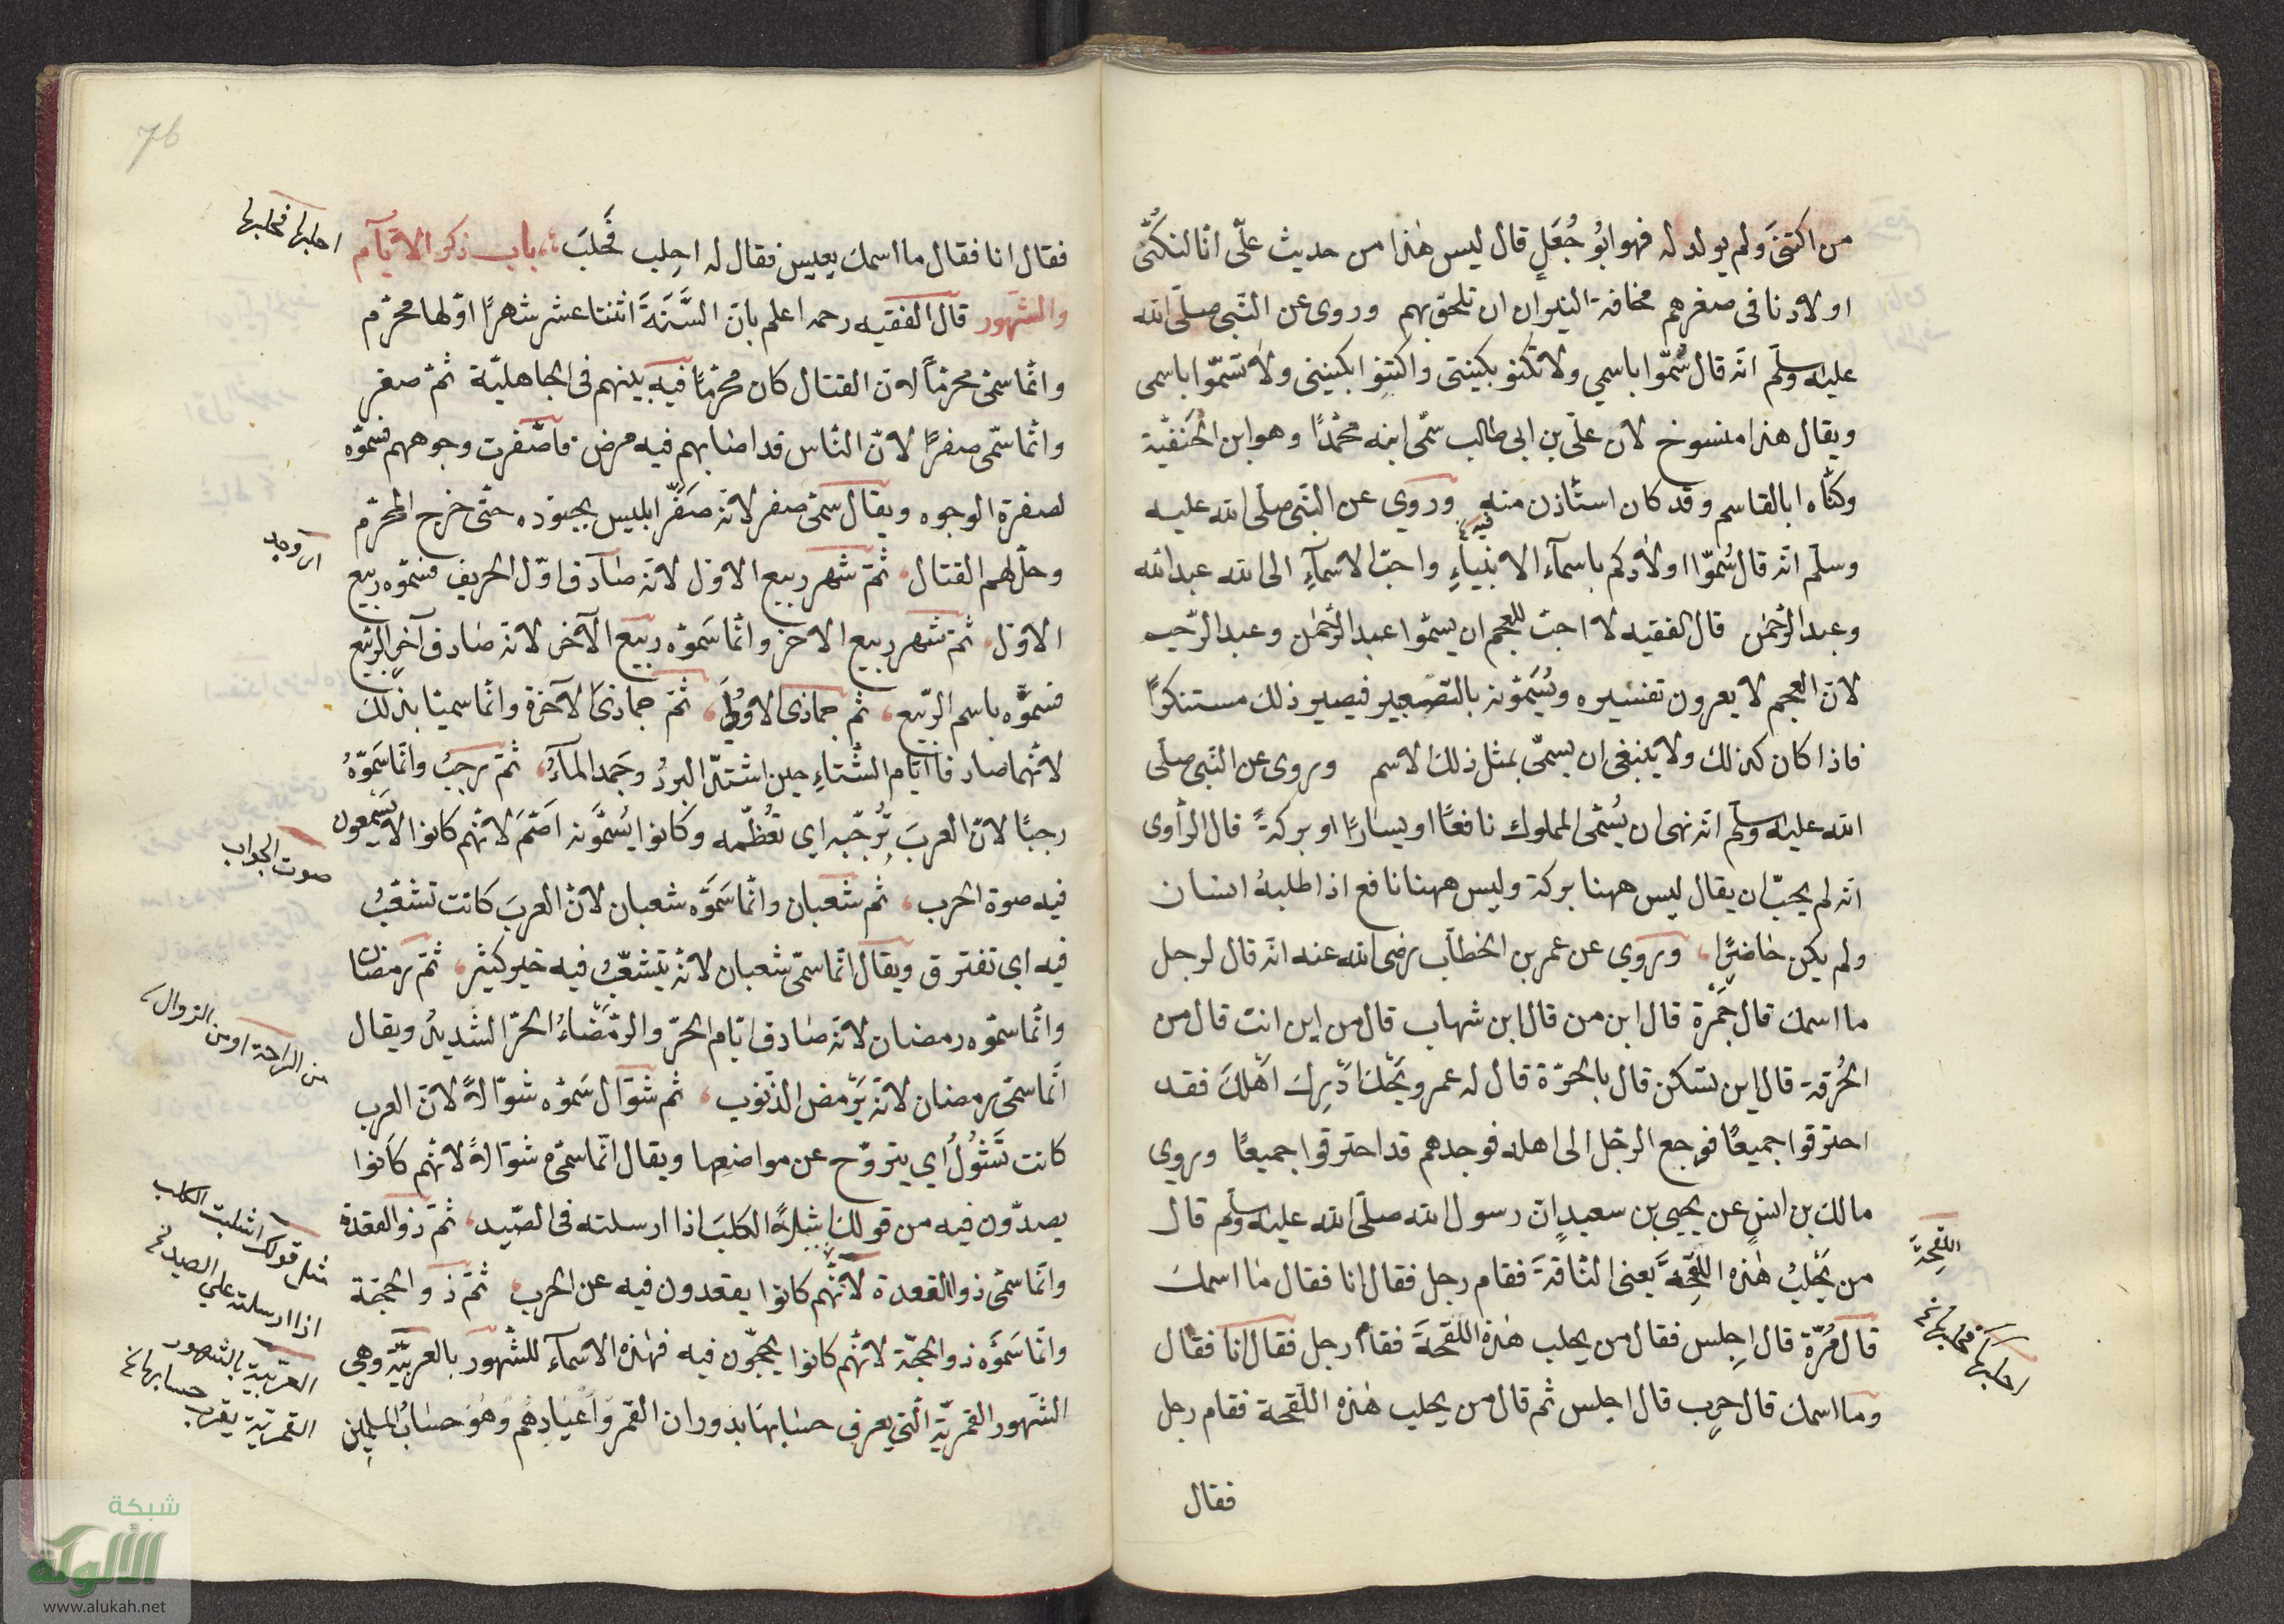 من اكتنى ولم يولد له فهو ابُو جُعَلٍ قال ليس هٰذا من حديث علّى انّا لنكُنّى
اولادنا فى صغرهم مخافة ان تلحق بهم وروى عن النّبى صلّى الله
عليه وسلّم انّه قال سُمّوا باسمي ولا تكنو بكنيتى واكتنوا بكنيتى ولا تسمّوا باسمى
ويقال هذا منسوخ لان علّى بن ابى طالب سمّى ابنه محمّدًا وهو ابن الحَنَفيّة
وكنّاه ابا القاسم وقد كان استأذن منه فيه وروي عن النّبى صلّى الله عليه
وسلّم انّه قال سُمّوا اولادكم باسمآء الانبيآءِ واحبّ الاسمآءِ الى الله عبد الله
وعبد الرّحمٰن قال الفقيه لا احبّ للعجم ان يسمّوا عبد الرّحمٰن وعبد الرّحيم
لانّ العجم لا يعرون تفسيره ويُسَمّونه بالتّصغير فيصير ذلك مستنكرًا
فاذا كان كذلك ولا ينبغى ان يسمّى بمثل ذلك الاسم وروى عن النّبى صلّى
الله عليه وسلّم انّه نهى ان يُسّمى المملوك نافعًا او يسارًا او بركةً قال الرّاوى
انّه لم يحبّ ان يقال ليس ههنا بركة وليس ههنا نافع اذا طلبهُ انسان
ولم يكن حاضرًا وروي عن عمر بن الخطّاب رضى الله عنه انّه قال لرجل
ما اسمك قال جَمْرة قال ابن من قال ابن شهاب قال من اين انت قال من
الحُرقة قال اين تسكن قال بالحرّة قال له عمر ويحك ادْرِك اهْلك فقد
احترقوا جميعًا فرجع الرجل الى اهله فوجدهم قد احترقوا جميعًا وروي
مالك بن انسٍ عن يحيى بن سعيدٍ انّ رسول الله صلّى الله عليه وسلّم قال
من يَحْلِبُ هٰذه اللَّقحةَ يعنى النّاقةَ فقام رجل فقال انا فقال ما اسمك
قال مُرّة قال اجلِس فقال من يحلب هٰذه اللّقحةَ فقام رجل فقال انا فقال
وما اسمك قال حرب قال اجلس ثم قال من يحلب هٰذه اللّقحة فقام رجل
فقال
اللّقحةَ
احلبها فحلبها نخ
76
فقال انا فقال ما اسمك يعيس فقال له احِلب فحَلبَ باب ذكر الايّآم
والشّهور قال الفقيه رحمه اعلم بانّ السَّنَةَ اثنتا عشر شهرًا اوّلها محرّم
وانّما سمّى محرّمًا لانّ القتال كان محرّمًا فيه بينهم فى الجاهليّة ثمّ صفر
وانّما سمّى صفرًا لانّ النّاس قد اصابهم فيه مرض فاصْفرت وجوههم فسمّوه
لصفرة الوجوه ويقال سمّى صفر لانّه صَفّر ابليس بجنوده حتّى خرج المحرّم
وحلّ لهم القتال ثمّ شهر ربيع الاوّل لانّه صادف اوّل الخريف فسمّوه ربيع
الاوّل ثمّ شهر ربيع الاخر وانّما سَمّوه ربيع الآخر لانّه صادف آخر الرّبيع
فسمّوه باسم الرّبيع ثم جمادَى الاوُلى ثمّ جمادَى الآخرة وانّما سميتا بذلك
لانّهما صادفا ايّام الشّتاءِ حين اشتدّ البردُ وجَمد المآءُ ثمّ رجبُ وانّما سَمّوهُ
رجبًا لانّ العربَ تُرجّبه اي تُعظّمه وكانوا يُسَمّونه اصَمَّ لانّهم كانوا لا يسمعون
فيه صوة الحرب ثم شعبان وانّما سَمَوّه شعبان لانّ العربَ كانت تشعّبُ
فيه اي تفترق ويقال انّما سمّى شعبان لانّه يتشعّبُ فيه خير كثير ثمّ رمضان
وانّما سمّوه رمضان لانّه صادف ايّام الحرّ والرمَضَاءُ الحرّ الشّديدُ ويقال
انّما سمّى رمضان لانّه يَرْمض الذّنوب ثم شوّال سَمّوه شوّالاً لانّ العرب
كانت تَشوُلُ اَي يتروّح عن مواضعها ويقال انّما سمّى شوّالاً لانّهم كانوا
يصدّون فيه من قولك الكلبَ اذا ارسلته فى الصّيد ثمّ ذو القعدة
وانّما سمّى ذو القعدة لانّهم كانوا يقعدون فيه عن الحرب ثمّ ذو الحجّة
وانّما سَمّوه ذو الحجّة لانّهم كانوا يحجّون فيه فهٰذه الاسمآء للشّهور بالعربيّة وهى
الشّهور القمريّة الّتى يعرف حسابها بدوران القمر واعيادهم وهو حسابُ المسلمين
احلبها فحلبها
اى وجد
صوت الجواب
من الراحة او من الزوال
مثل قولك اشليت الكلب
اذا ارسلته على الصيد نخ
العربيّة بالشهور
القمريّة يقرب حسابها نخ
شبكة
الألوكة
www.alukah.net